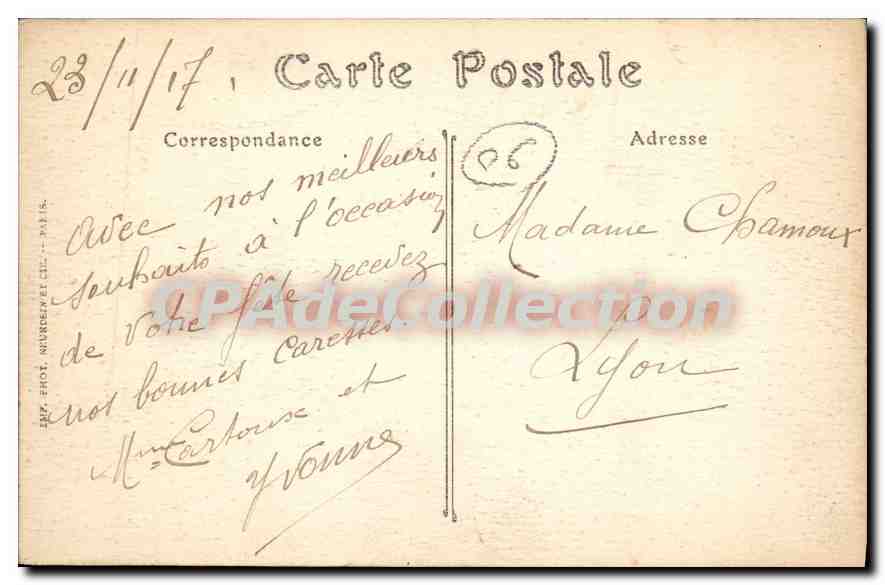 23/11/17.
Carte Postale
Correspondance
Adresse
06
Avec nos meilleurs
souhaits à l'occasion
de votre fête recevez
nos bonnes caresses.
Mme Cartoux et
Yvonne
Madame Chamoux
à
Lyon
IMP. PHOT. NEURDEIN ET CIE. — PARIS.
CPAdeCollection.com